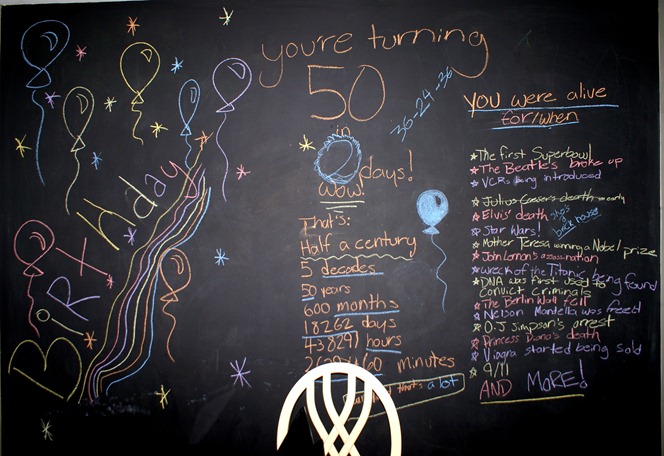 BiRtHday
you're turning
50
in
0 days!
wow!
36-24-36
That's:
Half a century
5 decades
50 years
600 months
18262 days
438291 hours
minutes
that's a lot
YOU were alive
for/when
The first Superbowl
The Beatle's broke up
VCRs being introduced
Julius Caeser's death
Elvis' death
Star Wars!
Mother Teresa winning a Nobel prize
John Lennon's assassination
wreck of the Titanic being found
DNA was first used to
convict criminals
The Berlin Wall fell
Nelson Mandella was freed
O.J Simpson's arrest
Princess Diana's death
Viagra started being sold
9/11
AND MORE!